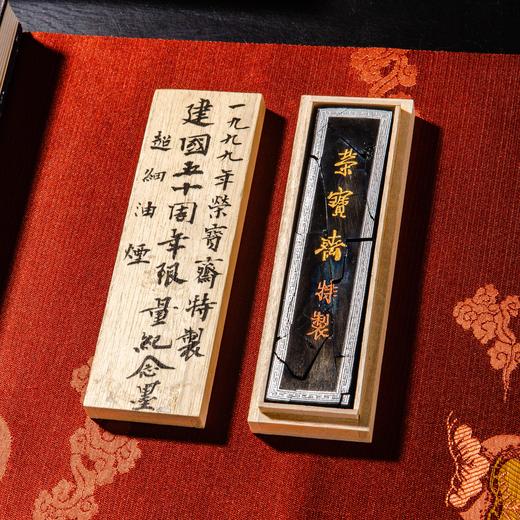 一九九九年榮寶齋特製
建國五十周年限量紀念墨
超細油煙
榮寶齋特製